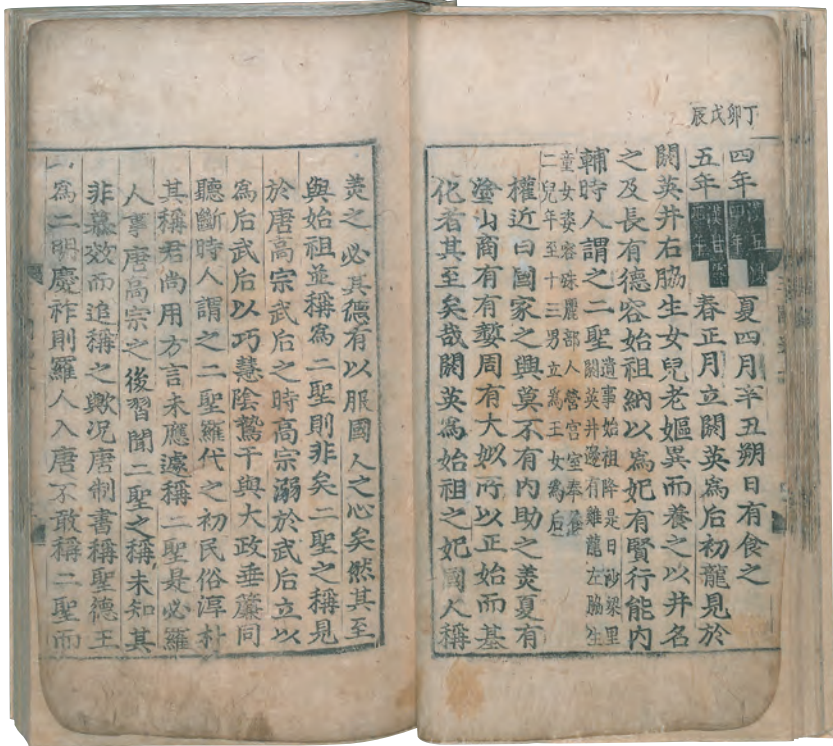 丁卯戊辰
四年漢五鳳四年夏四月辛丑朔日有食之
五年漢甘露元年春正月立閼英爲后初龍見於
閼英井右脇生女兒老嫗異而養之以井名
之及長有德容始祖納以爲妃有賢行能內
輔時人謂之二聖遺事始祖降是日沙梁里
閼英井邊有雞龍左脇生
童女姿容殊麗部人營宮室奉養
二兒年至十三男立爲王女爲后
權近曰國家之興莫不有內助之美夏有
塗山商有有㜪周有大姒所以正始而基
化者其至矣哉閼英爲始祖之妃國人稱
美之必其德有以服國人之心矣然其至
與始祖並稱爲二聖則非矣二聖之稱見
於唐高宗武后之時高宗溺於武后立以
爲后武后以巧慧陰鷙干與大政垂簾同
聽斷時人謂之二聖羅代之初民俗淳朴
其稱君尚用方言未應遽稱二聖是必羅
人事唐高宗之後習聞二聖之稱未知其
非慕效而追稱之歟况唐制書稱聖德王
爲二明慶祚則羅人入唐不敢稱二聖而